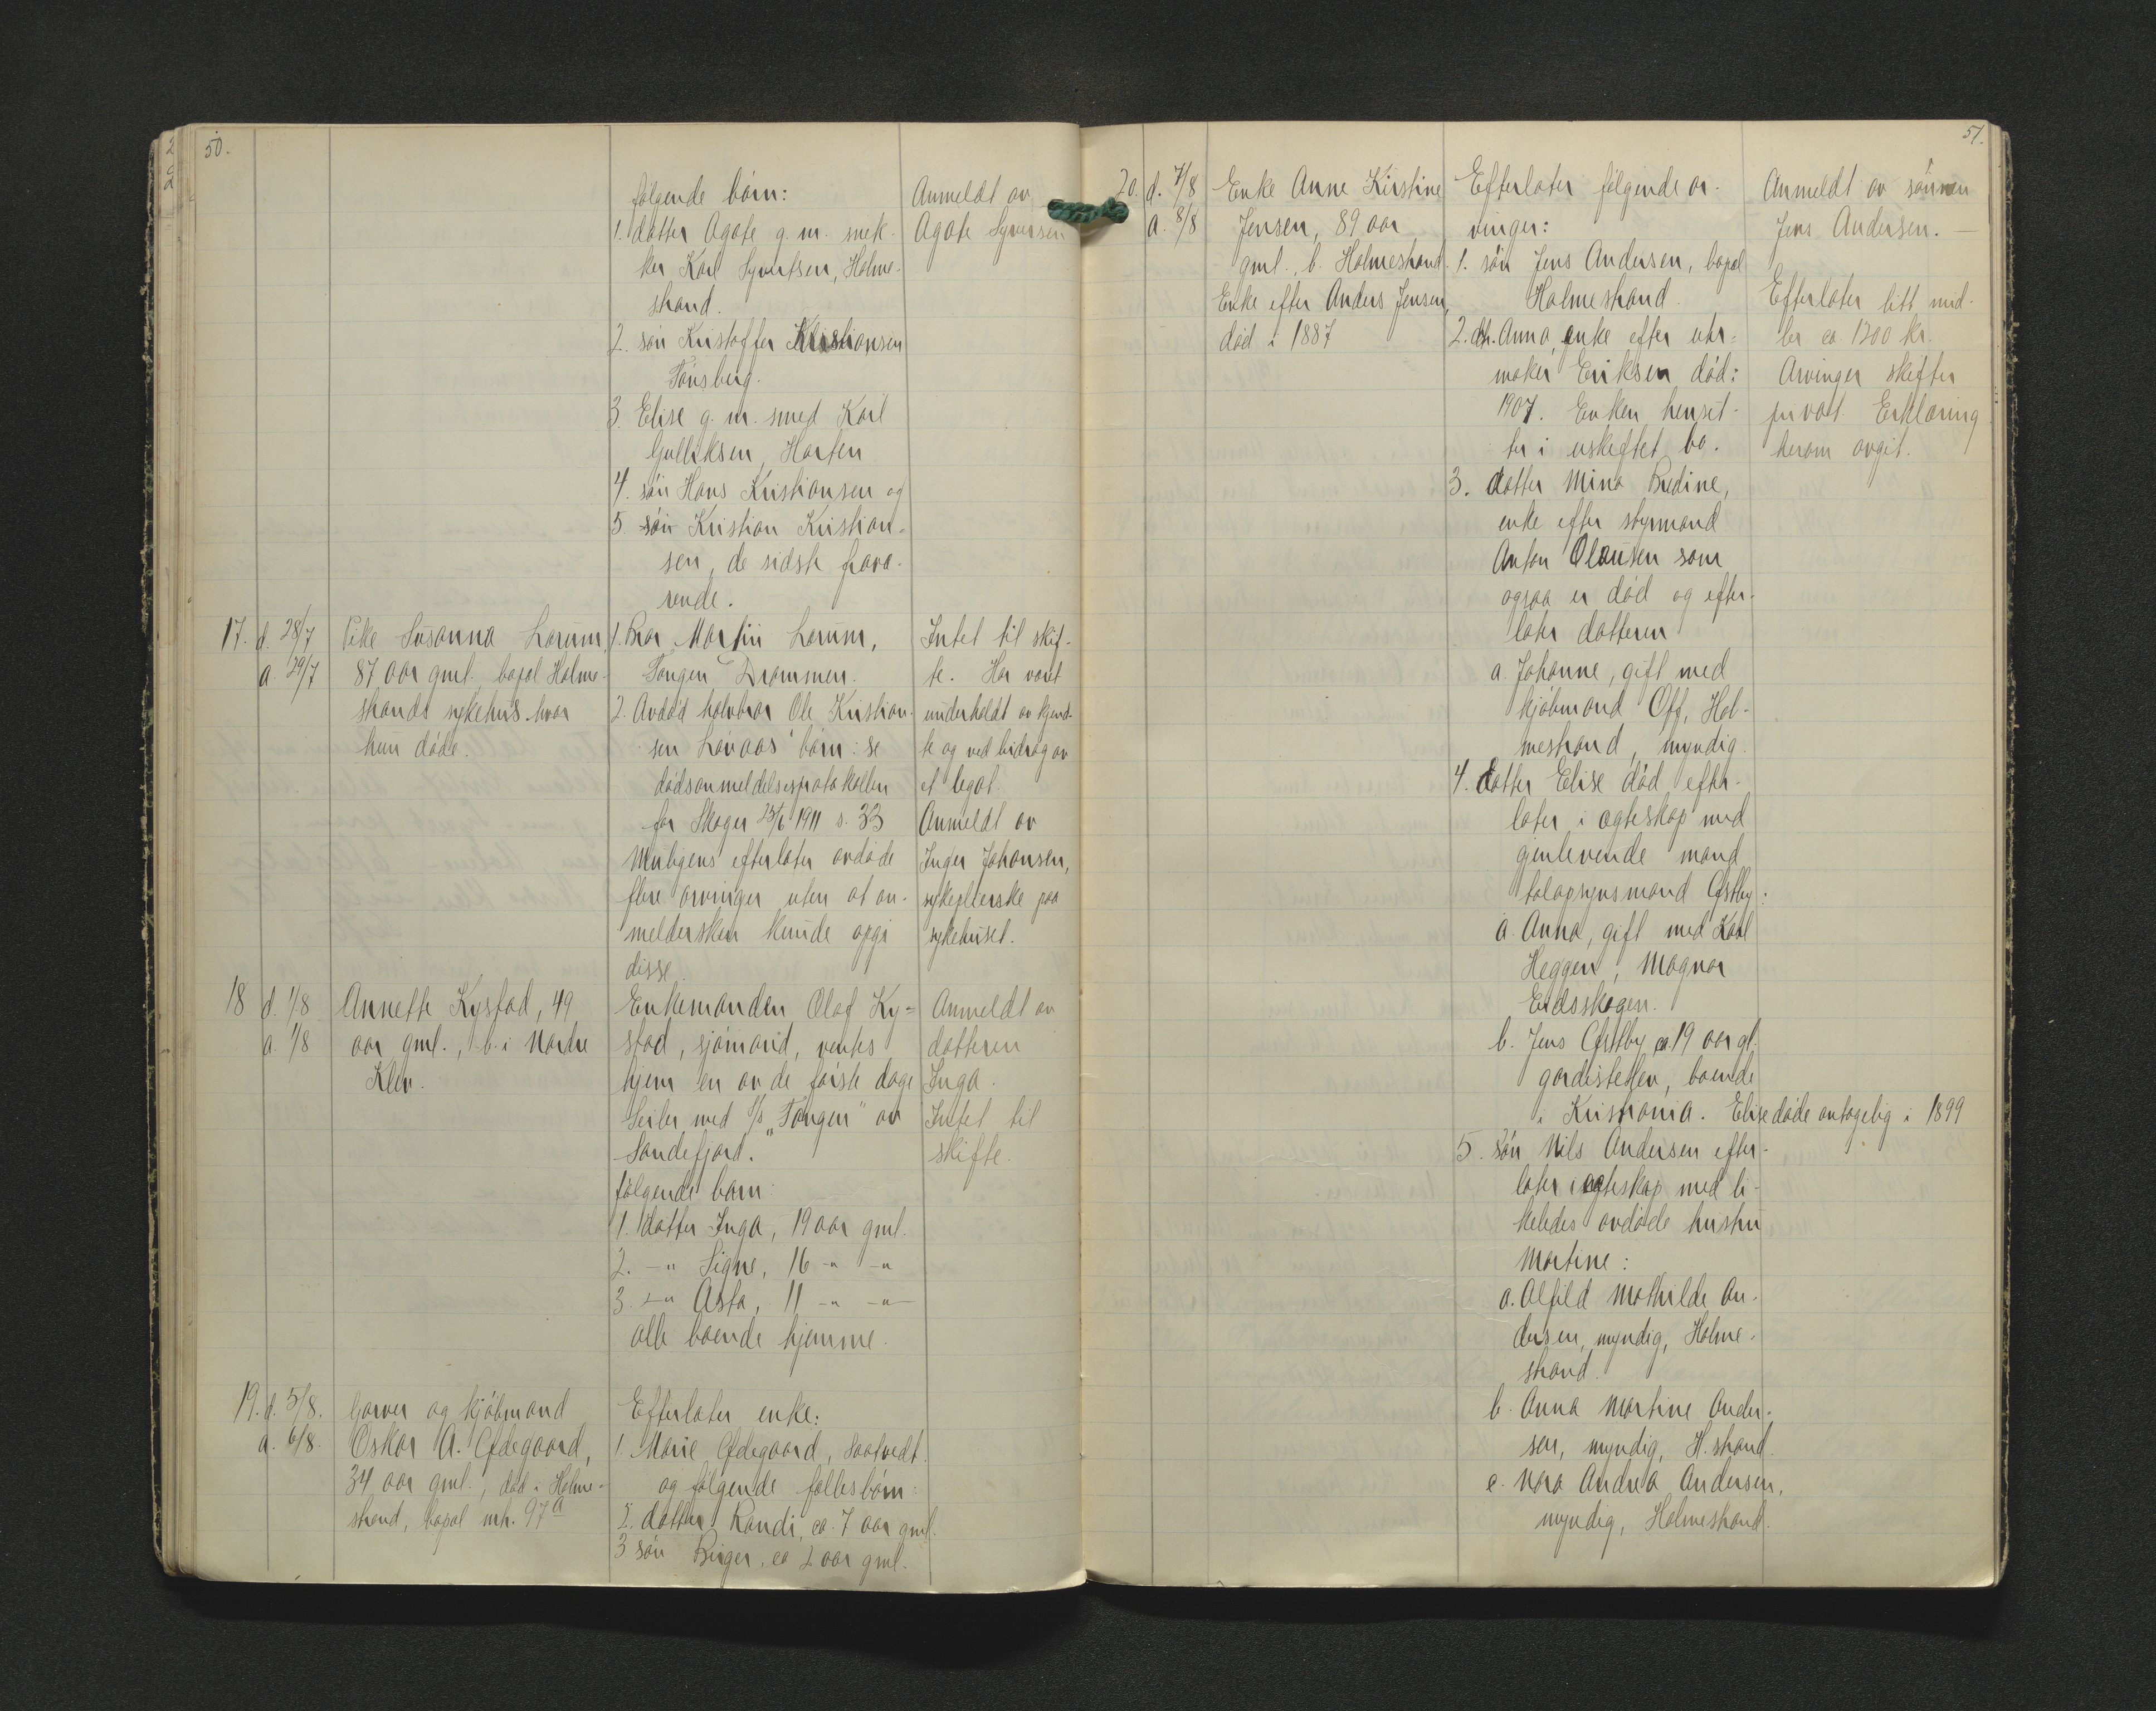 50.
følgende børn:
1. datter Agate g. m. snek-
ker Karl Syvertsen, Holme-
strand.
2. søn Kristoffer Kristiansen
Tønsberg.
3. Elise g. m. smed Karl
Gulliksen, Horten
4. søn Hans Kristiansen og
5 søn Kristian Kristian-
sen, de sidste fravæ-
rende.
Anmeldt av
Agate Syversen
17. d. 28/7
a 29/7
Pike Susanna Lorum,
87 aar gml. bopæl Holme-
strands sykehus hvor
hun døde.
1. Bror Martin Lorum,
Tangen Drammen.
2. Avdød halvbror Ole Kristian-
sen Løvaas' børn: se
dødsanmeldelsesprotokollen
for Skoger 23/6 1911 s. 33
Muligens efterlater avdøde
flere arvinger uten at an-
meldersken kunde opgi
disse.
Intet til skif-
te. Har været
underholdt av kjend-
te og ved bidrag av
et legat.
Anmeldt av
Inger Johansen,
sykepleierske paa
sykehuset.
18 d. 1/8
a. 1/8
Annette Kystad, 49
aar gml., b. i Nordre
Klev.
Enkemanden Olaf Ky=
stad, sjømand, ventes
hjem en av de første dage
Seiler med S/S "Tangen" av
Sandefjord.
følgende barn:
1. datter Inga, 19 aar gml.
2. -"- Signe, 16 -"- -"-
3. -"- Asta, 11 -"- -"-
alle boende hjemme.
Anmeldt av
datteren
Inga.
Intet til
skifte.
19. d. 5/8.
a. 6/8.
Garver og kjøbmand
Oskar A. Ødegaard,
34 aar gml., død i Holme-
strand, bopæl mtr. 97a
Efterlater enke:
1. Marie Ødegaard, Saatvedt.
og følgende fællesbørn:
2. datter Randi, ca. 7 aar gml.
3 søn Birger, ca 2 aar gml.
51.
20. d. 7/8
a. 8/8
Enke Anne Kirstine
Jensen, 89 aar
gml., b. Holmestrand.
Enke efter Anders Jensen,
død i 1887
Efterlater følgende ar-
vinger:
1. søn Jens Andersen, bopæl
Holmestrand.
2. dtr. Anna, enke efter uhr-
maker Eriksen død:
1907. Enken hensit-
ter i uskiftet bo.
3. datter Mina Bredine,
enke efter styrmand
Anton Olausen som
ogsaa er død og efter-
later datteren
a. Johanne, gift med
kjøbmand Off, Hol-
mestrand, myndig.
4. datter Elise død efter-
later i ægteskap med
gjenlevende mand
tolopsynsmand Østby:
a. Anna, gift med Karl
Heggen, Magnor
Eidsskogen.
b. Jens Østby ca. 19 aar gl.
gardistelev, boende
i Kristiania. Elise døde antagelig i 1899
5. søn Nils Andersen efter-
later i ægteskap med li-
keledes avdøde hustru
Martine:
a. Alfild Mathilde An-
dersen, myndig, Holme-
strand.
b. Anna Martine Ander-
sen, myndig, H.strand.
c. Nora Andrea Andersen,
myndig, Holmestrand.
Anmeldt av sønnen
Jens Andersen. —
Efterlater litt mid-
ler ca 1200 kr.
Arvinger skifter
privat. Erklæring
herom avgit.